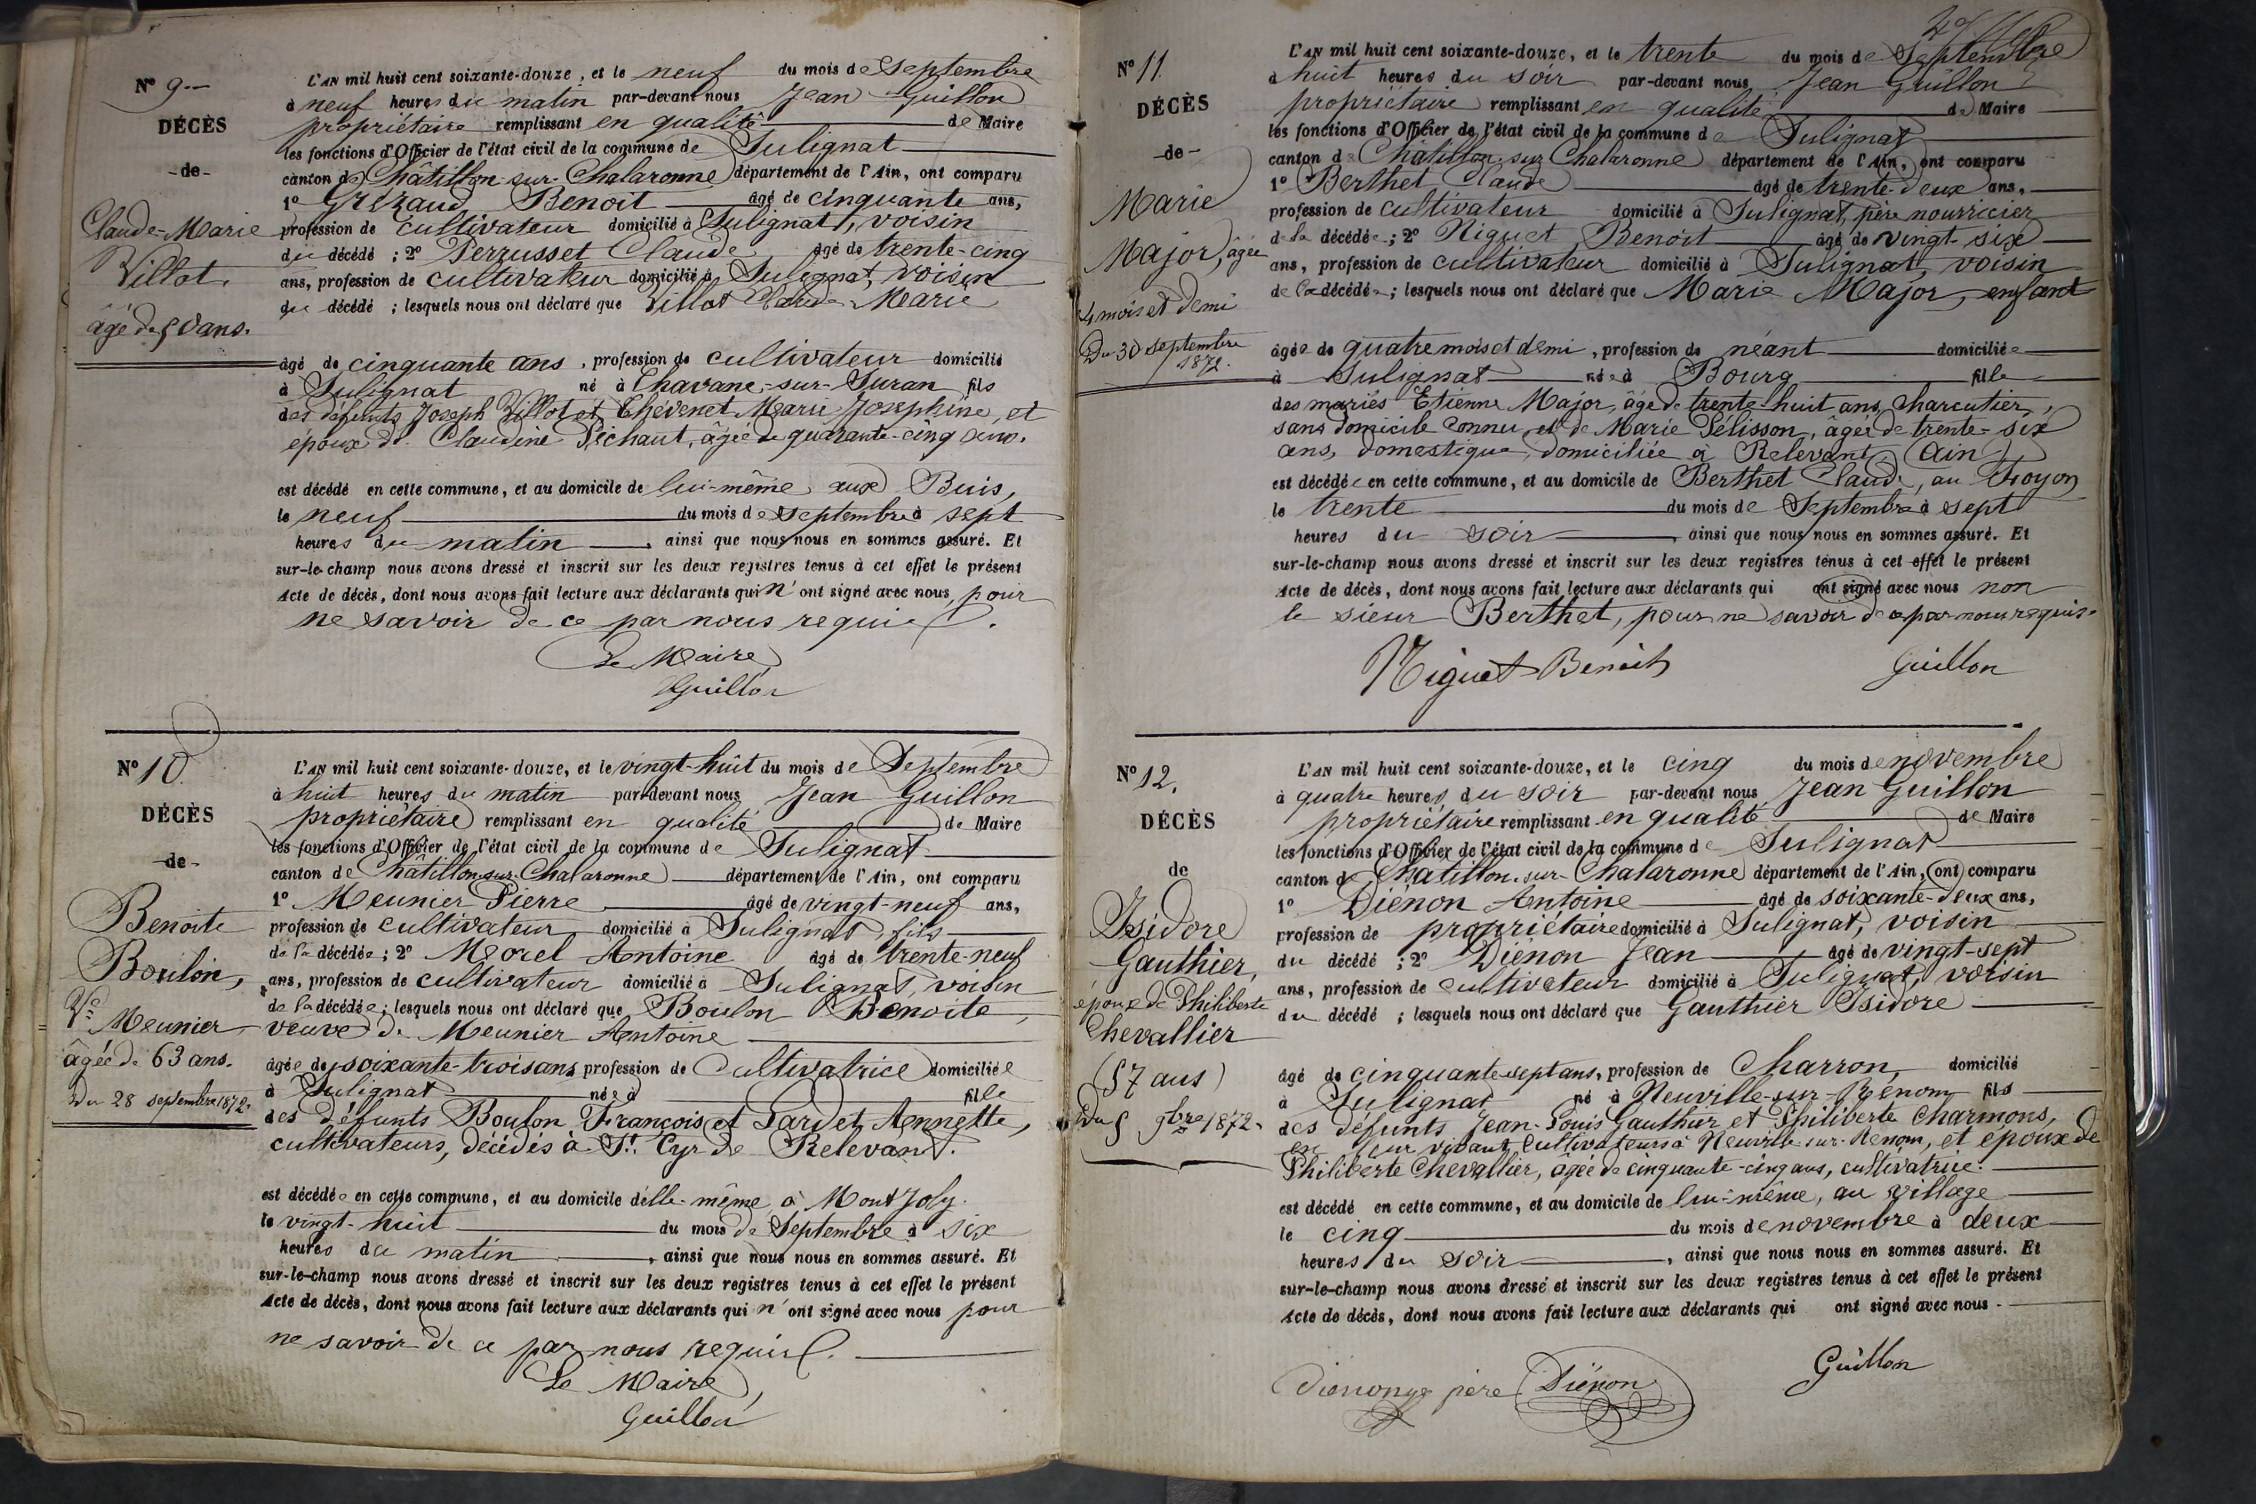 N° 9
DÉCÈS
-de-
Claude-Marie
Villot.
âgé de 50 ans.
L'AN mil huit cent soixante-douze, et le neuf du mois de Septembre
à neuf heures du matin par-devant nous Jean Guillon
propriétaire remplissant en qualité de Maire
les fonctions d'Officier de l'état civil de la commune de Sulignat
canton de Châtillon-sur-Chalaronne département de l'Ain, ont comparu
1° Grézaud Benoit âgé de cinquante ans,
profession de cultivateur domicilié à Sulignat, voisin
du décédé ; 2° Perrusset Claude âgé de trente-cinq
ans, profession de cultivateur domicilié à Sulignat, voisin
du décédé ; lesquels nous ont déclaré que Villot Claude-Marie
âgé de cinquante ans, profession de cultivateur domicilié
à Sulignat né à Chavane-sur-Suran fils
des défunts Joseph Villot et Thévenet Marie Joséphine, et
époux de Claudine Péchaut, âgée de quarante-cinq ans.
est décédé en cette commune, et au domicile de lui-même aux Buis,
le neuf du mois de Septembre à sept
heures du matin, ainsi que nous nous en sommes assuré. Et
sur-le-champ nous avons dressé et inscrit sur les deux registres tenus à cet effet le présent
Acte de décès, dont nous avons fait lecture aux déclarants qui n'ont signé avec nous, pour
ne savoir de ce par nous requis.
Le Maire,
Guillon
N° 10
DÉCÈS
-de-
Benoite
Boulon,
Ve Meunier
âgée de 63 ans.
Du 28 septembre 1872.
L'AN mil huit cent soixante-douze, et le vingt-huit du mois de Septembre
à huit heures du matin par-devant nous Jean Guillon
propriétaire remplissant en qualité de Maire
les fonctions d'Officier de l'état civil de la commune de Sulignat
canton de Châtillon-sur-Chalaronne département de l'Ain, ont comparu
1° Meunier Pierre âgé de vingt-neuf ans,
profession de cultivateur domicilié à Sulignat, fils
de la décédée ; 2° Morel Antoine âgé de trente-neuf
ans, profession de cultivateur domicilié à Sulignat, voisin
de la décédée ; lesquels nous ont déclaré que Boulon Benoite,
veuve de Meunier Antoine
âgée de soixante-trois ans, profession de Cultivatrice domiciliée
à Sulignat née à fille
des défunts Boulon François et Pardet Annette,
cultivateurs, décédés à St. Cyr de Relevant.
est décédée en cette commune, et au domicile d'elle-même à Mont Joly.
le vingt-huit du mois de Septembre à six
heures du matin, ainsi que nous nous en sommes assuré. Et
sur-le-champ nous avons dressé et inscrit sur les deux registres tenus à cet effet le présent
Acte de décès, dont nous avons fait lecture aux déclarants qui n'ont signé avec nous pour
ne savoir de ce par nous requis.
Le Maire,
Guillon
N° 11.
DÉCÈS
-de-
Marie
Major, âgée
4 mois et demi
Du 30 septembre
1872.
L'AN mil huit cent soixante-douze, et le trente du mois de Septembre
à huit heures du soir par-devant nous Jean Guillon
propriétaire remplissant en qualité de Maire
les fonctions d'Officier de l'état civil de la commune de Sulignat
canton de Châtillon-sur-Chalaronne département de l'Ain, ont comparu
1° Berthet Claude âgé de trente-deux ans,
profession de cultivateur domicilié à Sulignat, père nourricier
de la décédée ; 2° Niguet Benoit âgé de vingt-six
ans, profession de cultivateur domicilié à Sulignat, voisin
de la décédée ; lesquels nous ont déclaré que Marie Major, enfant
âgée de quatre mois et demi, profession de néant domiciliée
à Sulignat née à Bourg fille
des mariés Etienne Major, âgé de trente-huit ans, charcutier,
sans domicile connu, et de Marie Pélisson, âgée de trente-six
ans, domestique, domiciliée à Relevant (Ain)
est décédée en cette commune, et au domicile de Berthet Claude, au Troyon
le trente du mois de Septembre à sept
heures du soir, ainsi que nous nous en sommes assuré. Et
sur-le-champ nous avons dressé et inscrit sur les deux registres tenus à cet effet le présent
Acte de décès, dont nous avons fait lecture aux déclarants qui ont signé avec nous non
le sieur Berthet, pour ne savoir de ce par nous requis.
Niguet Benoit Guillon
N° 12.
DÉCÈS
de
Isidore
Gauthier,
époux de Philiberte
Chevallier
(57 ans)
Du 5 9bre 1872.
L'AN mil huit cent soixante-douze, et le cinq du mois de novembre
à quatre heures du soir par-devant nous Jean Guillon
propriétaire remplissant en qualité de Maire
les fonctions d'Officier de l'état civil de la commune de Sulignat
canton de Châtillon-sur-Chalaronne département de l'Ain, ont comparu
1° Diénon Antoine âgé de soixante-deux ans,
profession de propriétaire domicilié à Sulignat, voisin
du décédé ; 2° Diénon Jean âgé de vingt-sept
ans, profession de cultivateur domicilié à Sulignat, voisin
du décédé ; lesquels nous ont déclaré que Gauthier Isidore
âgé de cinquante sept ans, profession de Charron, domicilié
à Sulignat né à Neuville-sur-Renom fils
des défunts Jean-Louis Gauthier et Philiberte Charmons,
en leur vivant cultivateurs à Neuville-sur-Renom, et époux de
Philiberte Chevallier, âgée de cinquante-cinq ans, cultivatrice.
est décédé en cette commune, et au domicile de lui-même, au village
le cinq du mois de novembre à deux
heures du soir, ainsi que nous nous en sommes assuré. Et
sur-le-champ nous avons dressé et inscrit sur les deux registres tenus à cet effet le présent
Acte de décès, dont nous avons fait lecture aux déclarants qui ont signé avec nous.
père Diénon Guillon